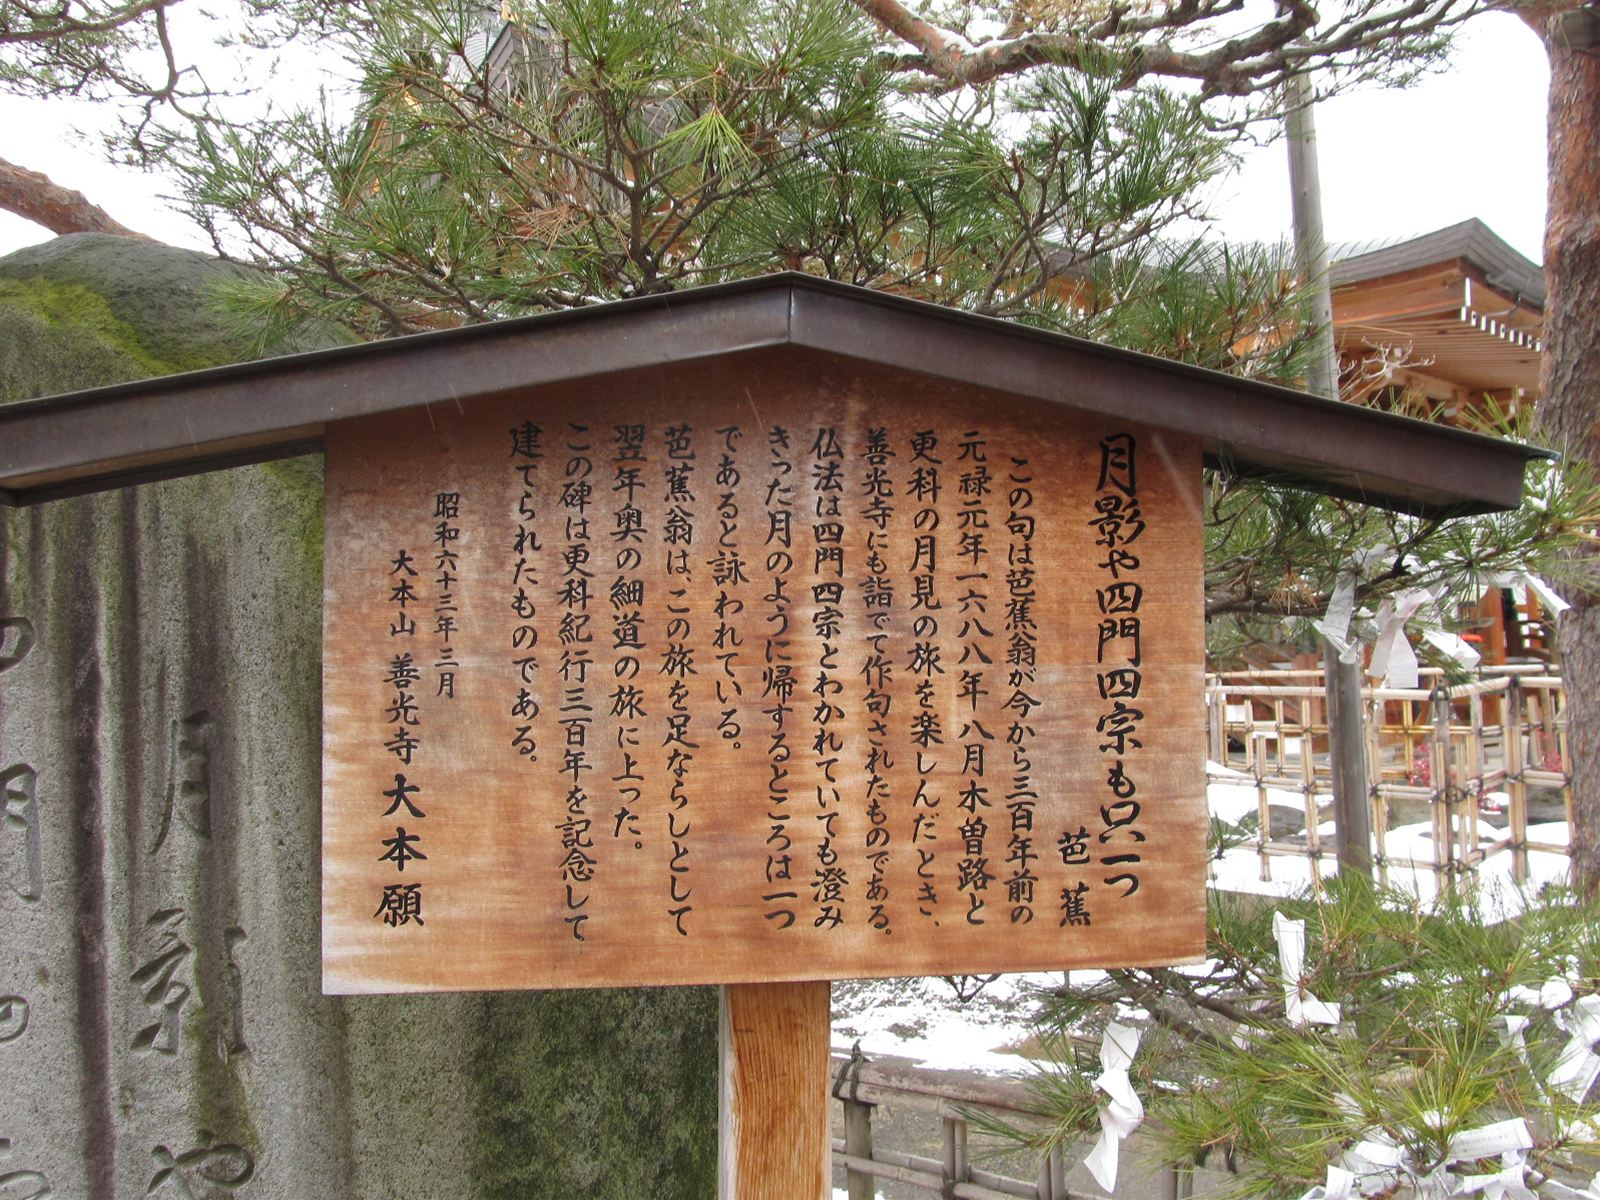 月影や四門四宗も只一つ
芭蕉
この句は芭蕉翁が今から三百年前の
元禄元年一六八八年八月木曽路と
更科の月見の旅を楽しんだとき、
善光寺にも詣でて作句されたものである。
仏法は四門四宗とわかれていても澄み
きった月のように帰するところは一つ
であると詠われている。
芭蕉翁は、この旅を足ならしとして
翌年奥の細道の旅に上った。
この碑は更科紀行三百年を記念して
建てられたものである。
昭和六十三年三月
大本山 善光寺大本願
月影や
四門四